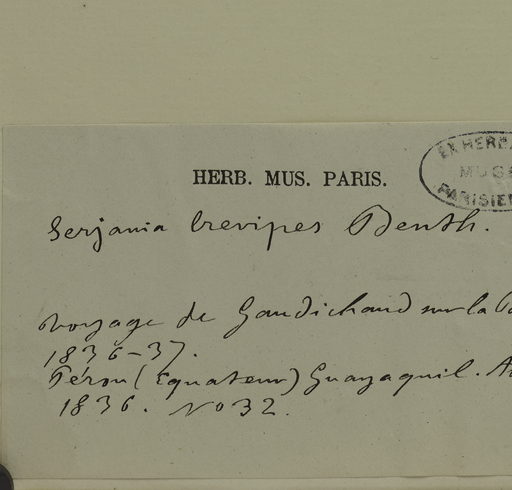 HERB. MUS. PARIS.
EX HERB.
MUS
PARISIEN
Serjania brevipes Benth.
Voyage de Gaudichaud sur la
1836-37.
Pérou (Equateur) Guayaquil.
1836. No 32.